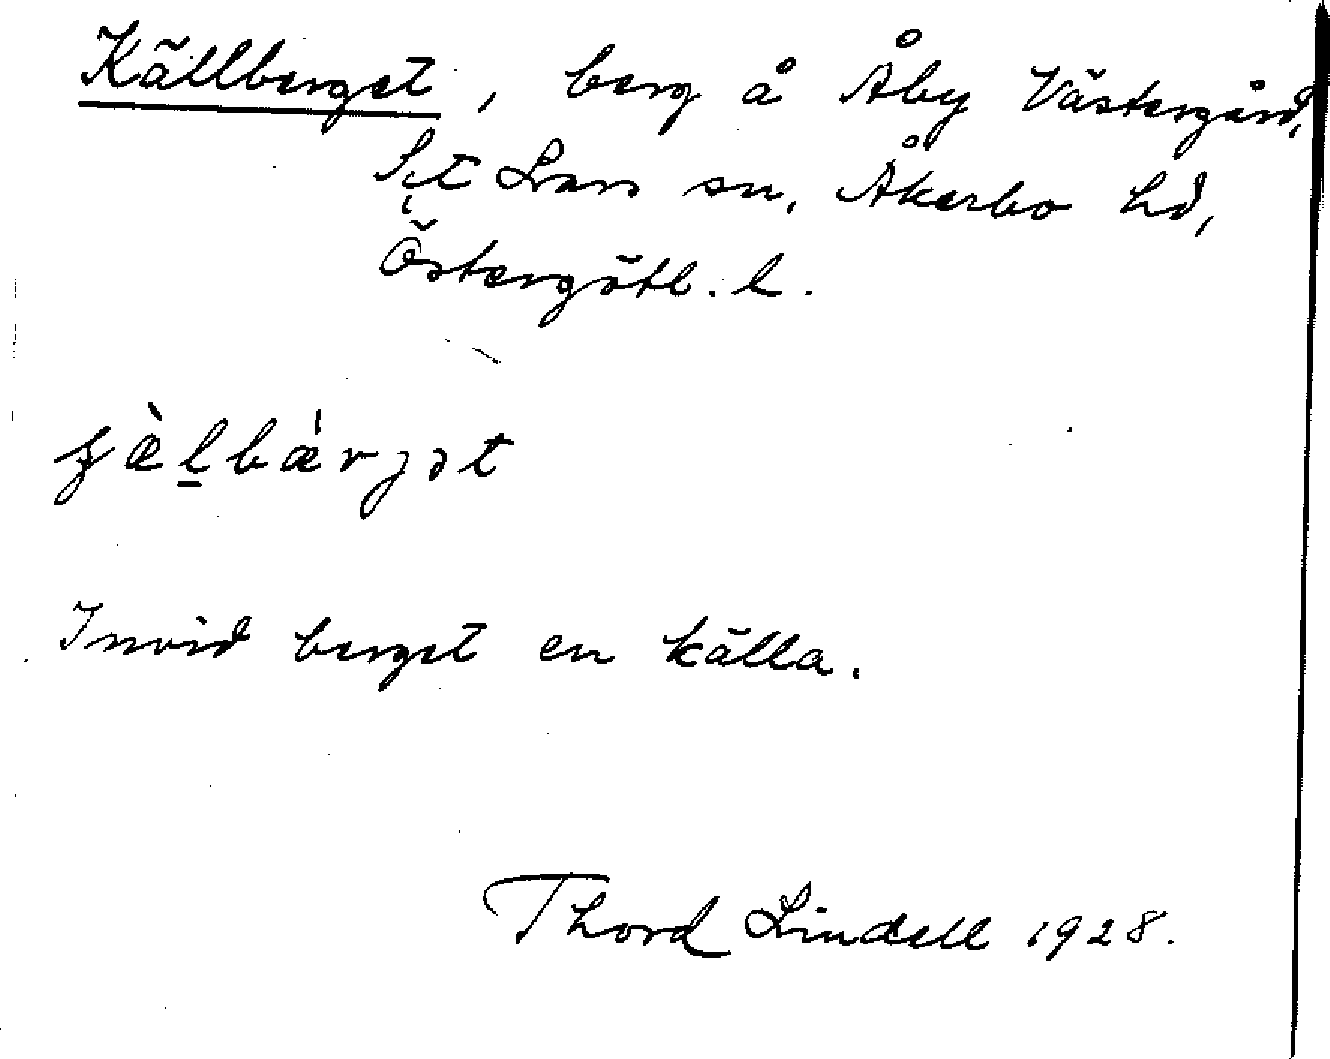 Källberget, berg å Åby Västergård,
S:t Lars sn, Åkerbo hd,
Östergötl. l.
Invid berget en källa.
Thord Lindell 1928.